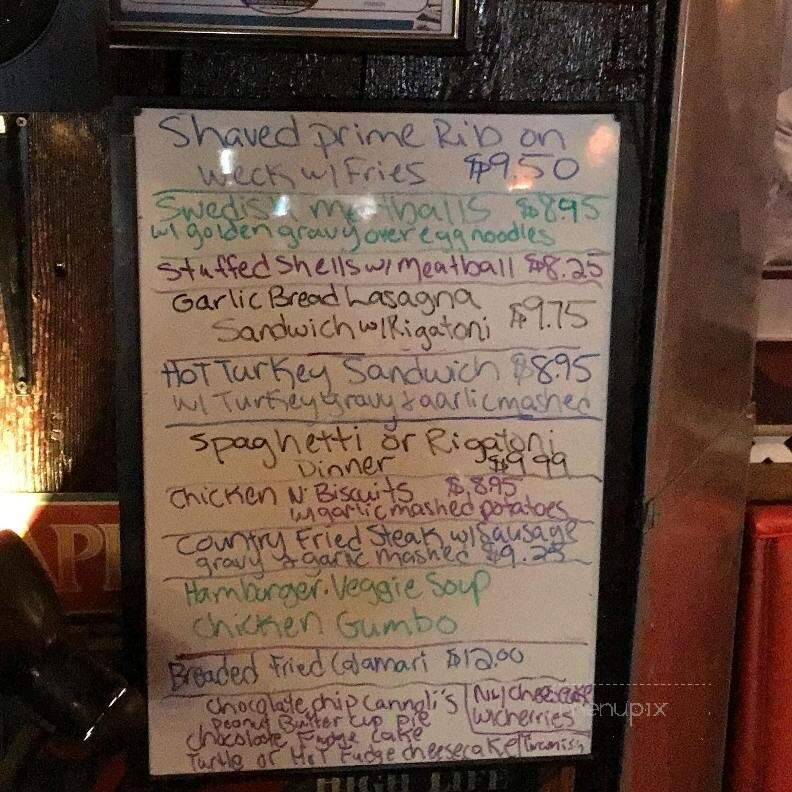 Shaved prime Rib on
weck w/ Fries $9.50
Swedish meatballs $8.95
w/ golden gravy over egg noodles
Stuffed Shells w/ Meatball $8.25
Garlic Bread Lasagna
Sandwich w/ Rigatoni $9.75
HOT Turkey Sandwich $8.95
w/ Turkey gravy & garlic mashed
Spaghetti or Rigatoni
Dinner $9.99
Chicken N' Biscuits $8.95
w/ garlic mashed potatoes
Country Fried Steak w/ Sausage
gravy & garlic mashed $9.25
Hamburger. Veggie Soup
Chicken Gumbo
Breaded Fried Calamari $12.00
Chocolate chip Cannoli's
Peanut Butter Cup Pie
Chocolate Fudge Cake
Turtle or Hot Fudge cheesecake
cheesecake
w/ cherries
menupix
HIGH LIFE